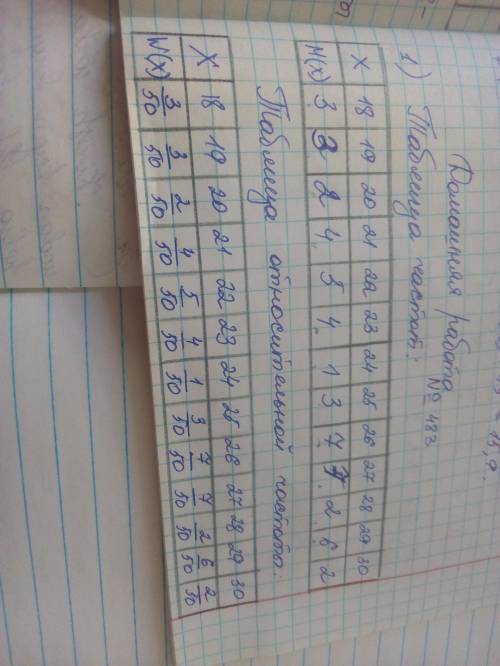 Домашняя работа
№ 483
1) Таблица частот:
X 18 19 20 21 22 23 24 25 26 27 28 29 30
M(x) 3 3 2 4 5 4 1 3 7 7 2 6 2
Таблица относительной частоты:
X 18 19 20 21 22 23 24 25 26 27 28 29 30
W(x) 3/50 3/50 2/50 4/50 5/50 4/50 1/50 3/50 7/50 7/50 2/50 6/50 2/50